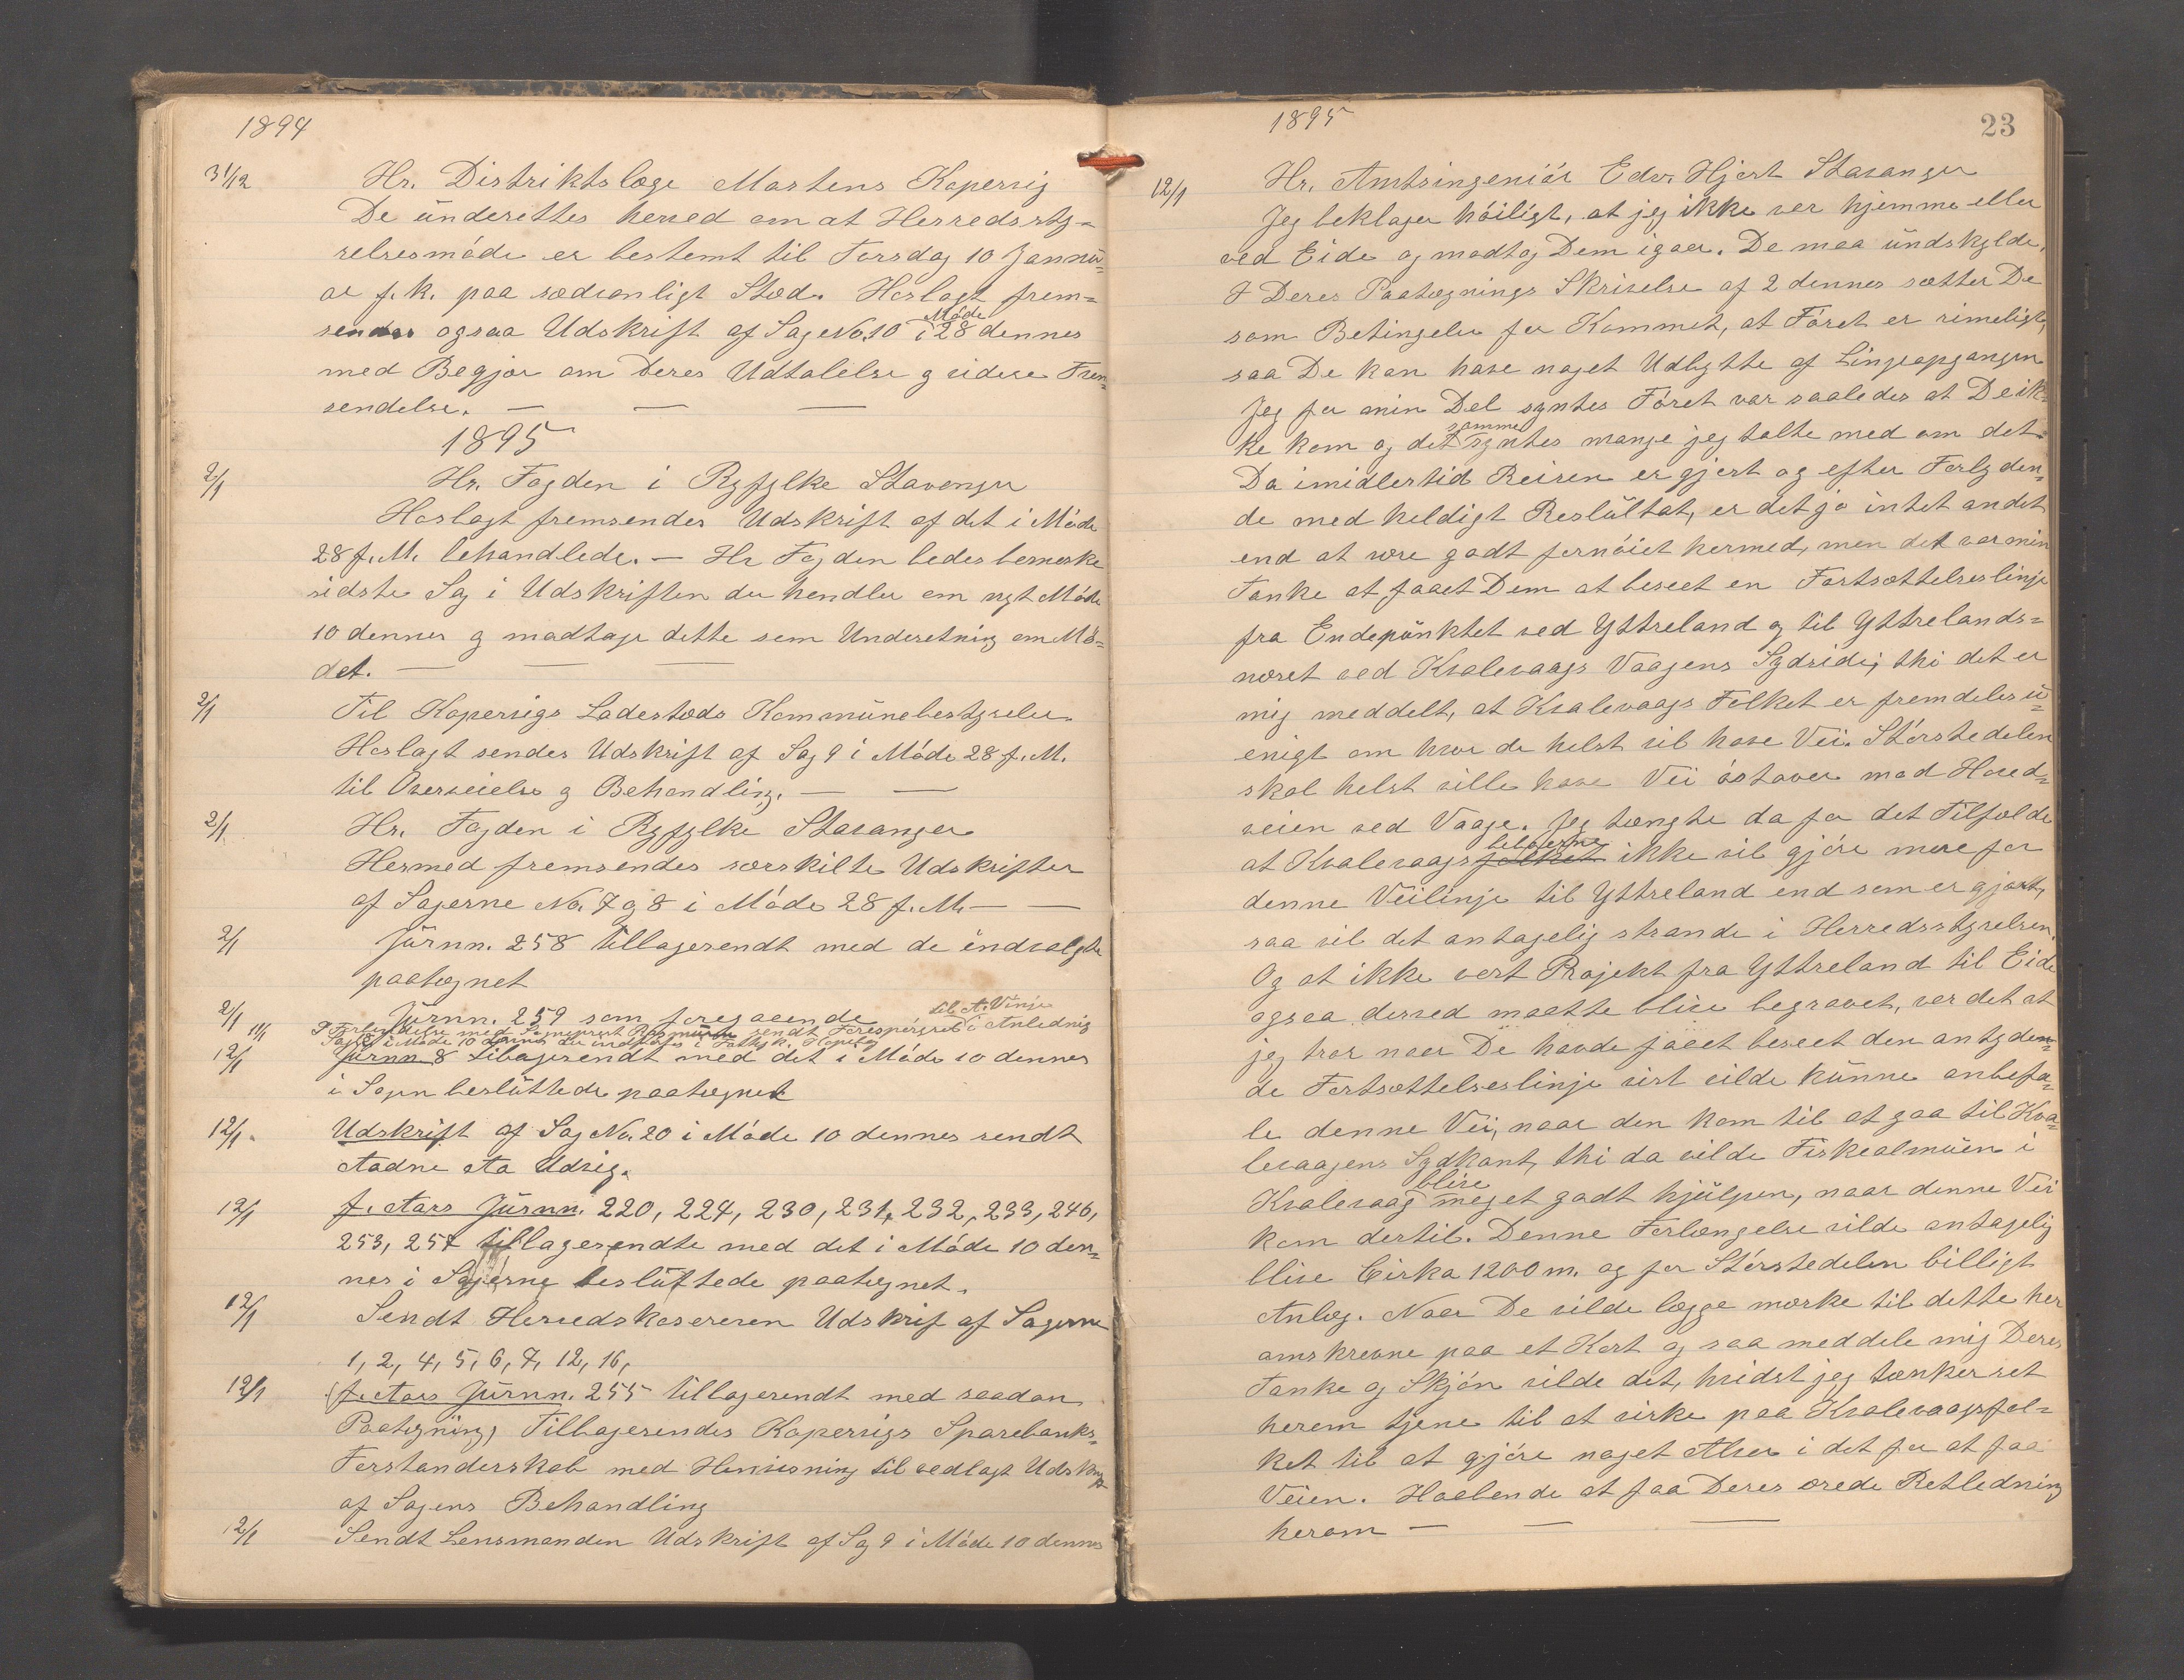 1894
31/12 Hr. Distriktslæge Martens Kopervig
De underettes herved om at Herredssty-
relsesmöde er bestemt til Torsdag 10 Janu-
ar f. k. paa sædvanligt Sted. Hoslagt frem-
sendes ogsaa Udskrift af Sag No. 10 i Möde 28 dennes
med Begjær om Deres Udtalelse og videre Frem-
sendelse. — — —
1895
2/1 Hr. Fogden i Ryfylke Stavanger
Hoslagt fremsendes Udskrift af det i Möde
28 f. M. behandlede. — Hr Fogden bedes bemerke
sidste Sag i Udskriften der handler om nyt Möde
10 dennes og modtage dette som Underetning om Mö-
det. — — —
2/1 Til Kopervigs Ladesteds Kommunebestyrelse.
Hoslagt sendes Udskrift af Sag 9 i Möde 28 f. M.
til Overveielse og Behandling. — —
2/1 Hr. Fogden i Ryfylke Stavanger
Hermed fremsendes særskilte Udskrifter
af Sagerne No. 7 og 8 i Möde 28 f. M. — —
2/1 Jurnn. 258 tilbagesendt med de indvalgte
paategnet
2/1 Jurnn. 259 som foregaaende
11/1 I Forbindelse med sendt Forespörgsel til A. Vinje i Anledning
Sag i Möde 10 dennes
12/1 Jurnn. 8 tilbagesendt med det i Möde 10 dennes
i Sagen besluttede paategnet
12/1. Udskrift af Sag No. 20 i Möde 10 dennes sendt
Aadne Aa Udvig.
12/1 f. Aars Jurnn. 220, 224, 230, 231, 232, 233, 246,
253, 257 tilbagesendte med det i Möde 10 den-
nes i Sagerne besluttede paategnet.
12/1 Sendt Herredskasereren Udskrif af Sagerne
1, 2, 4, 5, 6, 7, 12, 16,
12/1 f. Aars Jurnn. 255 tilbagesendt med saadan
Paategning, Tilbagesendes Kopervigs Sparebanks-
Forstanderskab med Henvisning til vedlagt Udskrift
af Sagens Behandling
12/1 Sendt Lensmanden Udskrift af Sag 9 i Möde 10 dennes
1895
23
12/1 Hr. Amtsingeniör Edv. Hjort Stavanger
Jeg beklager höiligt, at jeg ikke var hjemme eller
ved Eide og modtog Dem igaar. De maa undskylde.
I Deres Paategnings Skrivelse af 2 dennes sætter De
som Betingelse for Kommet, at Föret er rimeligt,
saa De kan have noget Udbytte af Linjeopgangen
Jeg for min Del syntes Föret var saaledes at De ik-
ke kom og det samme syntes mange jeg talte med om det.
Da imidlertid Reisen er gjort og efter Forlyden-
de med heldigt Reslultat, er det jo intet andet
end at være godt fornöiet hermed, men det var min
Tanke at faaet Dem at beseet en Fortsættelseslinje
fra Endepunktet ved Yttreland og til Yttrelands-
noret ved Kvalevaags Vaagens Sydside; thi det er
mig meddelt, at Kvalevaags Folket er fremdeles u-
enigt om hvor de helst vil have Vei. Störstedelen
skal helst ville have Vei östover mod Hoved-
veien ved Vaage. Jeg tængte da for det Tilfælde
at Kvalevaags folket beboerne ikke vil gjöre mere for
denne Veilinje til Yttreland end som er gjort,
saa vil det antagelig strande i Herredsstyrelsen.
Og at ikke vort Projekt fra Yttreland til Eide
ogsaa derved maatte blive begravet, var det at
jeg tror naar De havde faaet beseet den antyden-
de Fortsættelseslinje vist vilde kunne anbefa-
le denne Vei, naar den kom til at gaa til Kva-
levaagens Sydkant, thi da vilde Fiskealmuen i
Kvalevaag blive meget godt hjulpen, naar denne Vei
kom dertil. Denne Forlængelse vilde antagelig
blive Cirka 1200 m. og for Störstedelen billigt
Anlæg. Naar De vilde lægge mærke til dette her
omskrevne paa et Kart og saa meddele mig Deres
Tanke og Skjön vilde det, hvidst jeg tænker ret
herom tjene til at virke paa Kvalevaagsfol-
ket til at gjöre noget Alvor i det for at faa
Veien. Haabende at faa Deres ærede Retledning
herom — — —